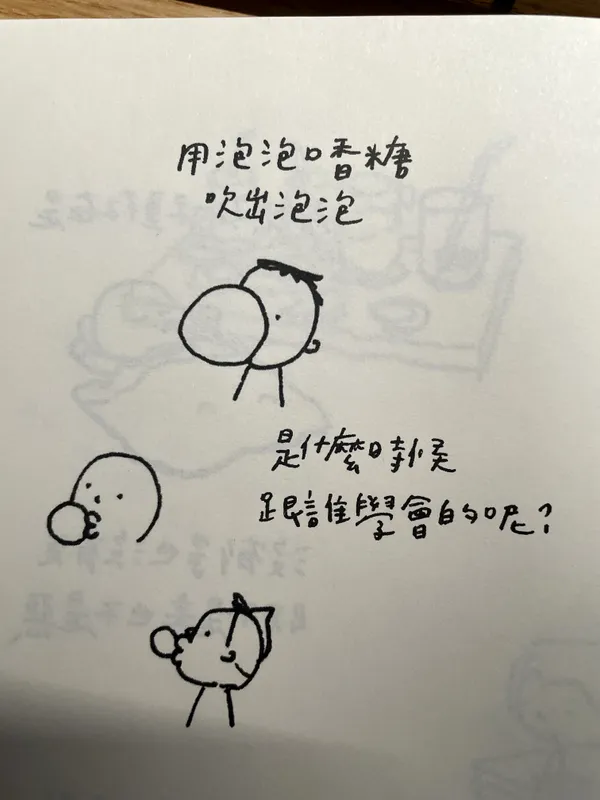 用泡泡口香糖
吹出泡泡
是什麼時候
跟誰學會的呢？